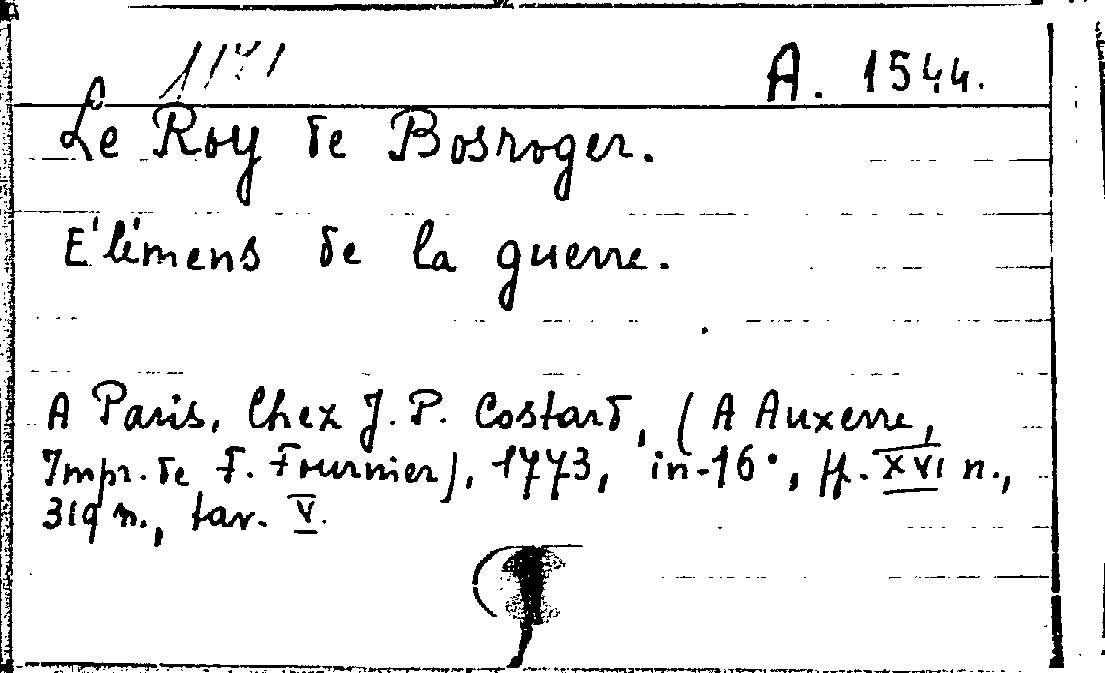 A. 1544.
Le Roy de Bosroger.
E'lémens de la guerre.
A Paris, Chez J. P. Costard, (A Auxerre,
Impr. de F. Fournier), 1773, in-16°, ff. XVI n.,
319 n., tav. V.